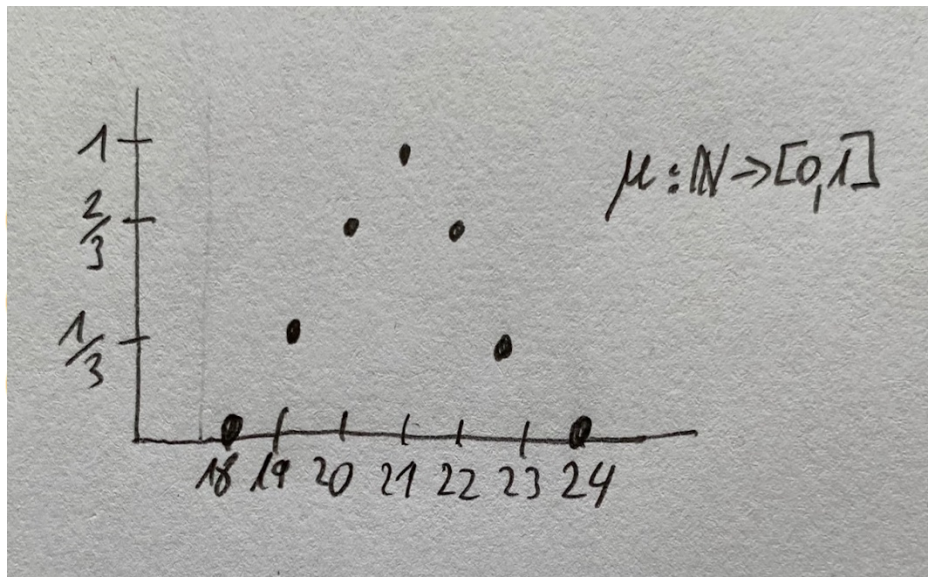 1
2/3
1/3
μ : ℕ → [0,1]
18 19 20 21 22 23 24